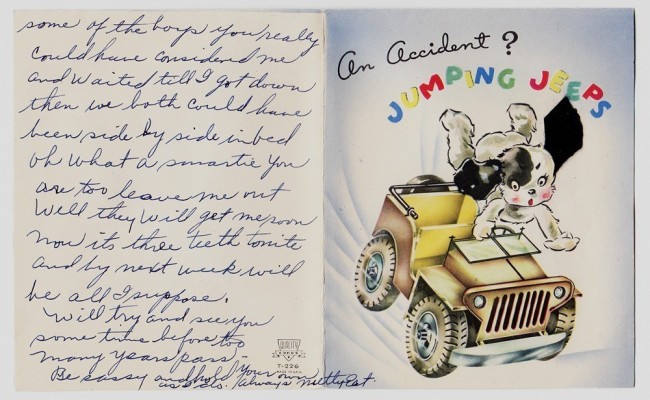 some of the boys you really
could have considered me
and waited till I got down
then we both could have
been side by side in bed
oh what a smartie you
are too leave me out
Well they will get me soon
now its three teeth tonite
and by next week will
be all I suppose.
Will try and see you
some time before too
many years pass.
Be sassy and hold your own
as Always
An Accident?
JUMPING JEEPS
QUALITY
CARDS
T-226
MADE IN U.S.A.